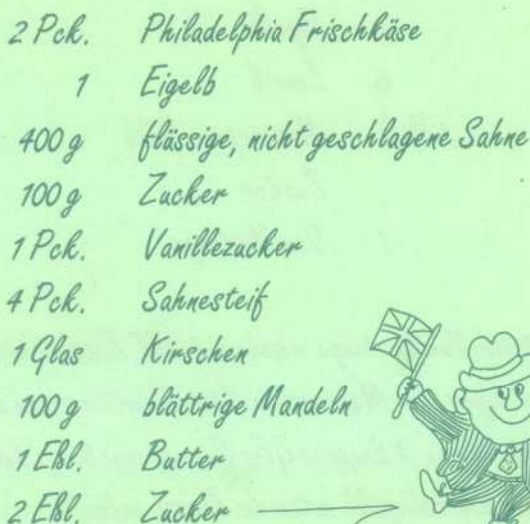 2 Pck. Philadelphia Frischkäse
1 Eigelb
400 g flüssige, nicht geschlagene Sahne
100 g Zucker
1 Pck. Vanillezucker
4 Pck. Sahnesteif
1 Glas Kirschen
100 g blättrige Mandeln
1 Eßl. Butter
2 Eßl. Zucker